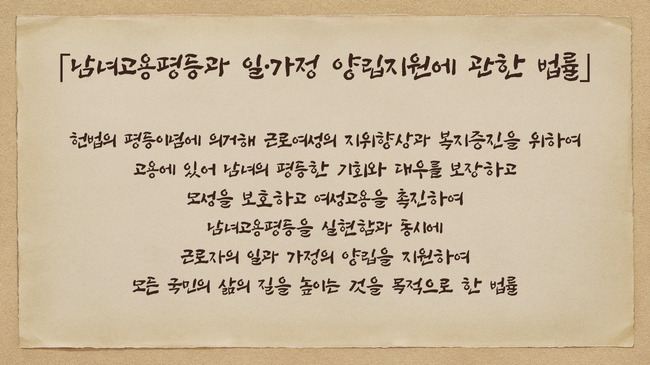 「남녀고용평등과 일·가정 양립지원에 관한 법률」
헌법의 평등이념에 의거해 근로여성의 지위향상과 복지증진을 위하여
고용에 있어 남녀의 평등한 기회와 대우를 보장하고
모성을 보호하고 여성고용을 촉진하여
남녀고용평등을 실현함과 동시에
근로자의 일과 가정의 양립을 지원하여
모든 국민의 삶의 질을 높이는 것을 목적으로 한 법률